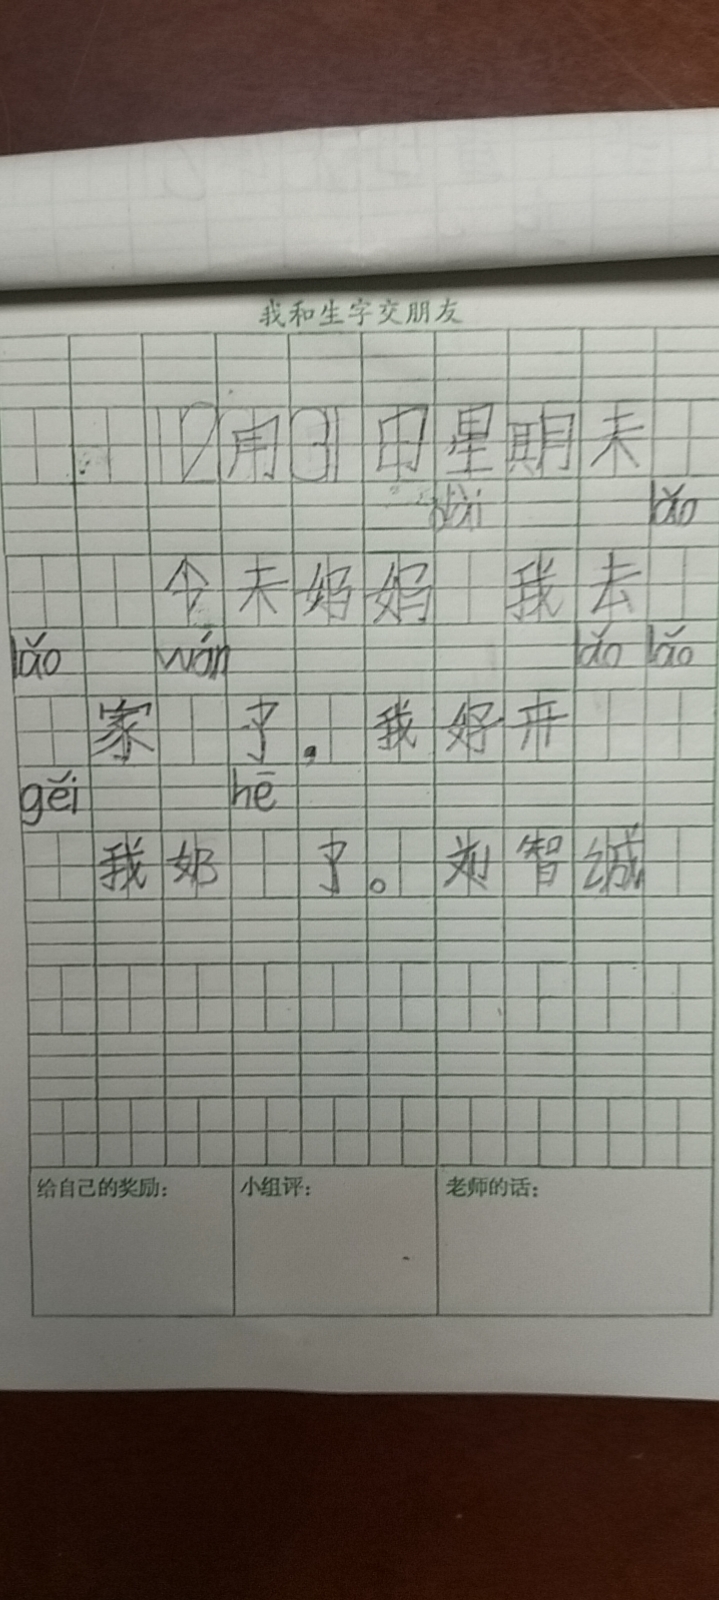 我和生字交朋友
12月31日星期末
dài lǎo
今天妈妈 我去
lǎo wán lǎo lǎo
家 了，我好开
gěi hē
我奶 了。刘智诚
给自己的奖励： 小组评： 老师的话：